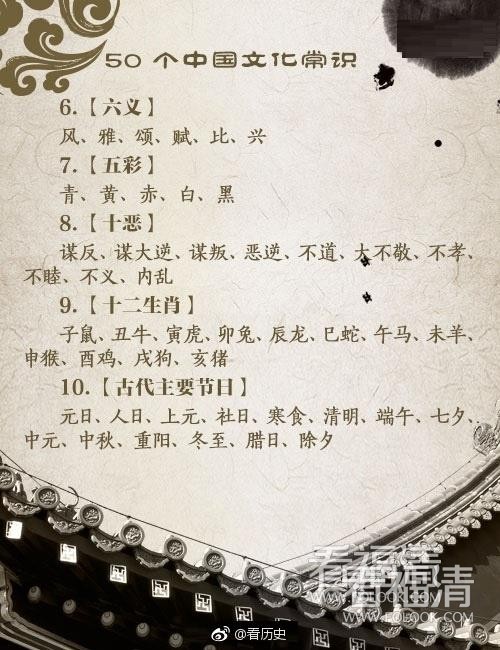 50 个中国文化常识
6.【六义】
风、雅、颂、赋、比、兴
7.【五彩】
青、黄、赤、白、黑
8.【十恶】
谋反、谋大逆、谋叛、恶逆、不道、大不敬、不孝、
不睦、不义、内乱
9.【十二生肖】
子鼠、丑牛、寅虎、卯兔、辰龙、巳蛇、午马、未羊、
申猴、酉鸡、戌狗、亥猪
10.【古代主要节日】
元日、人日、上元、社日、寒食、清明、端午、七夕、
中元、中秋、重阳、冬至、腊日、除夕
看福清
看福清
WWW.FQLOOK.COM
@看历史